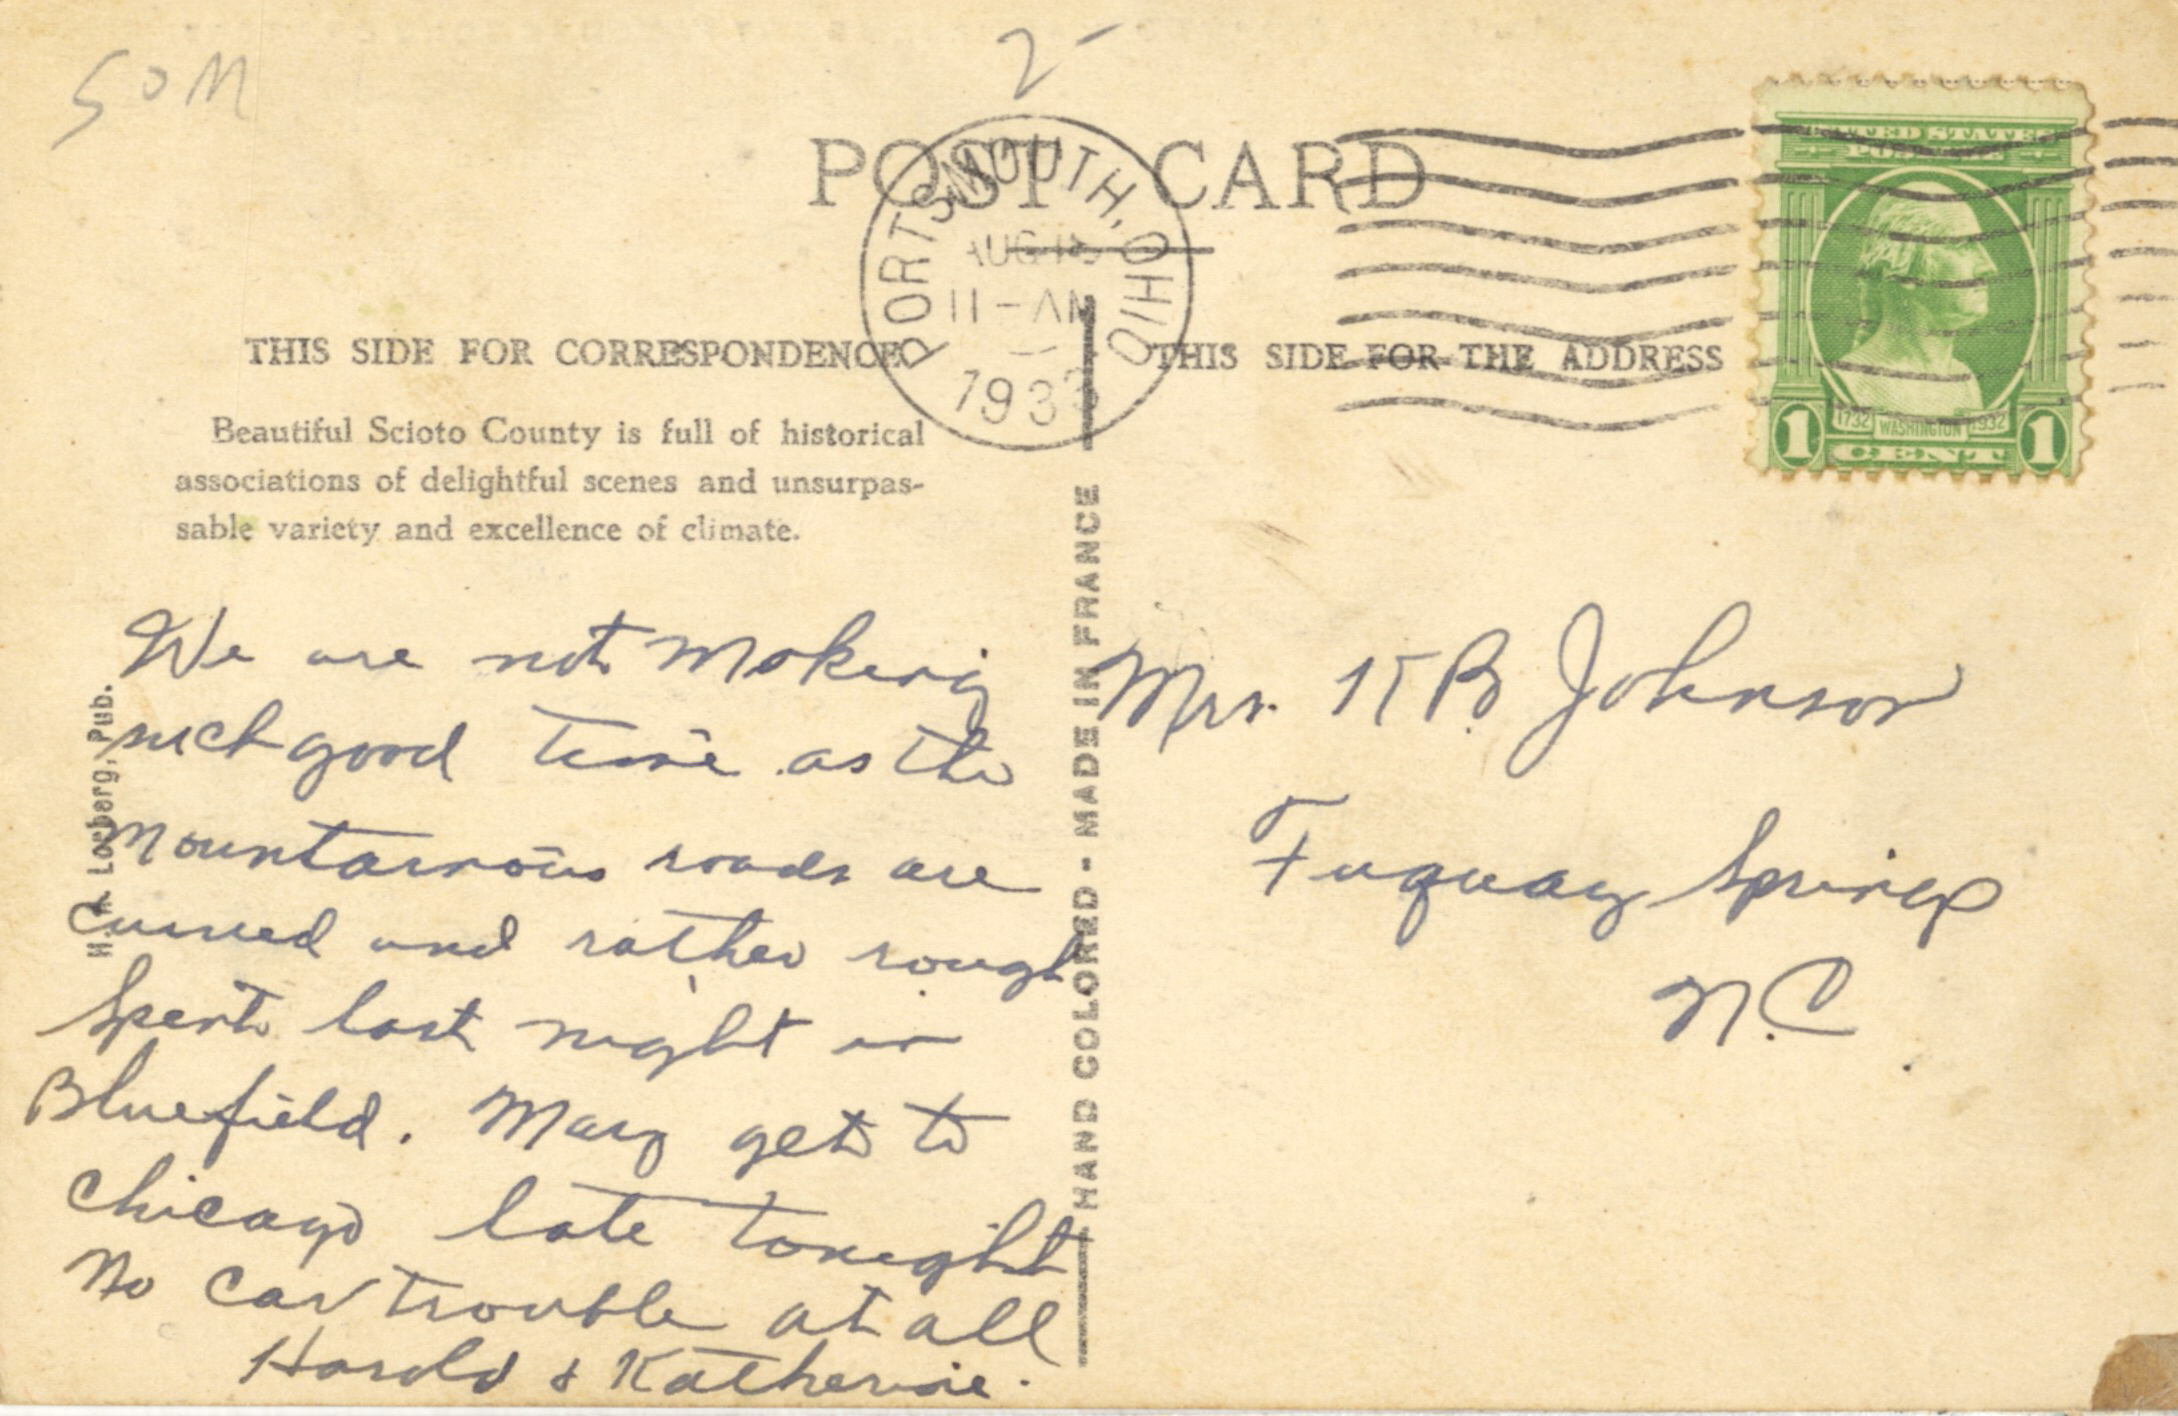 50M
2-
POST CARD
PORTSMOUTH, OHIO
AUG
11-AM
1933
UNITED STATES
POSTAGE
1732 WASHINGTON 1932
1 CENT 1
THIS SIDE FOR CORRESPONDENCE
THIS SIDE FOR THE ADDRESS
Beautiful Scioto County is full of historical
associations of delightful scenes and unsurpas-
sable variety and excellence of climate.
We are not making
such good time as the
mountainous roads are
curved and rather rough
Spent last night in
Bluefield. May get to
Chicago late tonight
No car trouble at all
Harold & Katherine.
H. A. Lorberg, Pub.
HAND COLORED - MADE IN FRANCE
Mrs. K B Johnson
Fuquay Springs
N.C